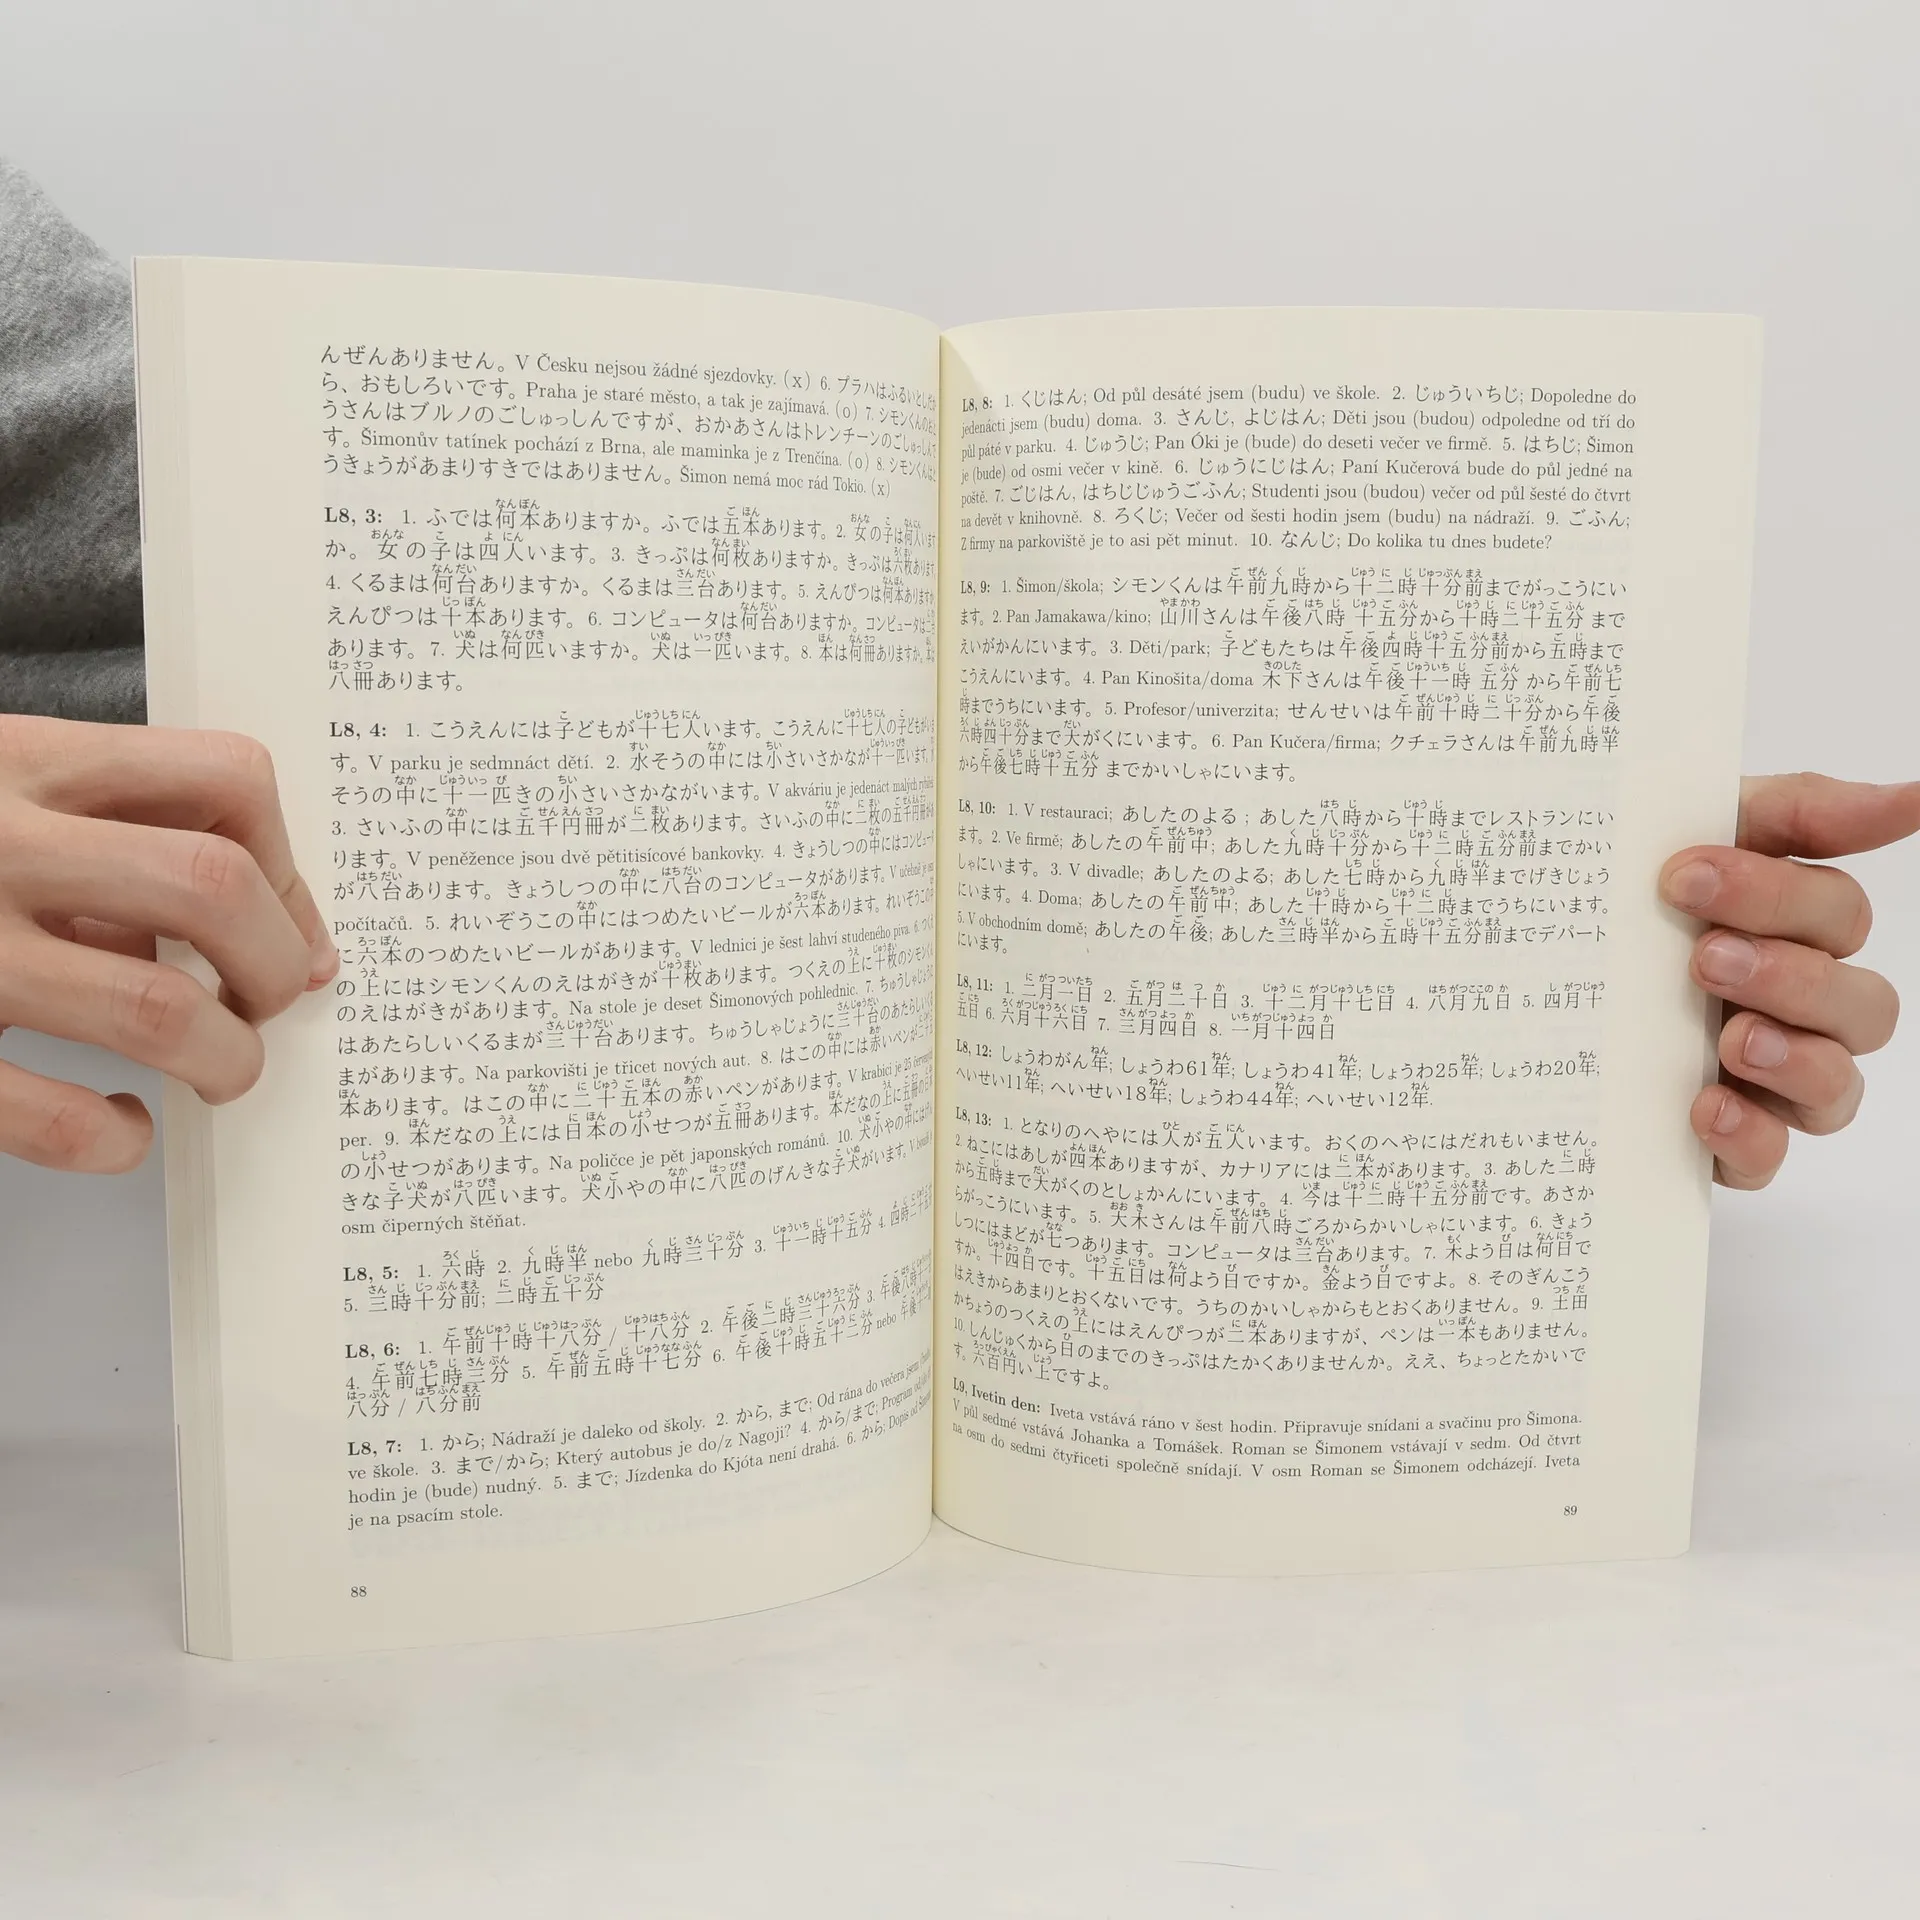 んぜんありません。V Česku nejsou žádné sjezdovky. (x) 6. プラハはふるいとしだか
ら、おもしろいです。Praha je staré město, a tak je zajímavá. (o) 7. シモンくんのおと
うさんはブルノのごしゅっしんですが、おかあさんはトレンチーンのごしゅっしんで
す。Šimonův tatínek pochází z Brna, ale maminka je z Trenčína. (o) 8. シモンくんはと
うきょうがあまりすきではありません。Šimon nemá moc rád Tokio. (x)
L8, 3: 1. ふでは何本ありますか。ふでは五本あります。2. 女の子は何人います
か。女の子は四人います。3. きっぷは何枚ありますか。きっぷは六枚あります。
4. くるまは何台ありますか。くるまは三台あります。5. えんぴつは何本ありますか。
えんぴつは十本あります。6. コンピュータは何台ありますか。コンピュータは
あります。7. 犬は何匹いますか。犬は一匹います。8. 本は何冊ありますか。本は
八冊あります。
L8, 4: 1. こうえんには子どもが十七人います。こうえんに十七人の子どもがいま
す。V parku je sedmnáct dětí. 2. 水そうの中には小さいさかなが十一匹います。水
そうの中に十一匹きの小さいさかながいます。V akváriu je jedenáct malých rybiček.
3. さいふの中には五千円冊が二枚あります。さいふの中に二枚の五千円冊があ
ります。V peněžence jsou dvě pětitisícové bankovky. 4. きょうしつの中にはコンピュータ
が八台あります。きょうしつの中に八台のコンピュータがあります。V učebně je osm
počítačů. 5. れいぞうこの中にはつめたいビールが六本あります。れいぞうこの中
に六本のつめたいビールがあります。V lednici je šest lahví studeného piva. 6. つくえ
の上にはシモンくんのえはがきが十枚あります。つくえの上に十枚のシモンくん
のえはがきがあります。Na stole je deset Šimonových pohlednic. 7. ちゅうしゃじょうに
はあたらしいくるまが三十台あります。ちゅうしゃじょうに三十台のあたらしいくる
まがあります。Na parkovišti je třicet nových aut. 8. はこの中には赤いペンが二十五
本あります。はこの中に二十五本の赤いペンがあります。V krabici je 25 červených
per. 9. 本だなの上には日本の小せつが五冊あります。本だなの上に五冊の日本
の小せつがあります。Na poličce je pět japonských románů. 10. 犬小やの中にはげん
きな子犬が八匹います。犬小やの中に八匹のげんきな子犬がいます。V boudě je
osm čiperných štěňat.
L8, 5: 1. 六時 2. 九時半 nebo 九時三十分 3. 十一時十五分 4. 四時二十五分
5. 三時十分前; 二時五十分
L8, 6: 1. 午前十時十八分 / 十八分 2. 午後二時三十六分 3. 午後八時
4. 午前七時三分 5. 午前五時十七分 6. 午後十時五十二分 nebo 午後十一時
八分 / 八分前
L8, 7: 1. から; Nádraží je daleko od školy. 2. から, まで; Od rána do večera jsem
ve škole. 3. まで/から; Který autobus je do/z Nagoji? 4. から/まで; Program od
hodin je (bude) nudný. 5. まで; Jízdenka do Kjóta není drahá. 6. から; Dopis od Šimona
je na psacím stole.
88
L8, 8: 1. くじはん; Od půl desáté jsem (budu) ve škole. 2. じゅういちじ; Dopoledne do
jedenácti jsem (budu) doma. 3. さんじ, よじはん; Děti jsou (budou) odpoledne od tří do
půl páté v parku. 4. じゅうじ; Pan Óki je (bude) do deseti večer ve firmě. 5. はちじ; Šimon
je (bude) od osmi večer v kině. 6. じゅうにじはん; Paní Kučerová bude do půl jedné na
poště. 7. ごじはん, はちじじゅうごふん; Studenti jsou (budou) večer od půl šesté do čtvrt
na devět v knihovně. 8. ろくじ; Večer od šesti hodin jsem (budu) na nádraží. 9. ごふん;
Z firmy na parkoviště je to asi pět minut. 10. なんじ; Do kolika tu dnes budete?
L8, 9: 1. Šimon/škola; シモンくんは午前九時から十二時十分前までがっこうにい
ます。2. Pan Jamakawa/kino; 山川さんは午後八時十五分から十時二十五分まで
えいがかんにいます。3. Děti/park; 子どもたちは午後四時十五分前から五時まで
こうえんにいます。4. Pan Kinošita/doma 木下さんは午後十一時五分から午前七
時までうちにいます。5. Profesor/univerzita; せんせいは午前十時二十分から午後
六時四十分まで大がくにいます。6. Pan Kučera/firma; クチェラさんは午前九時半
から午後七時十五分までかいしゃにいます。
L8, 10: 1. V restauraci; あしたのよる; あした八時から十時までレストランにい
ます。2. Ve firmě; あしたの午前中; あした九時十分から十二時五分前までかい
しゃにいます。3. V divadle; あしたのよる; あした七時から九時半までげきじょう
にいます。4. Doma; あしたの午前中; あした十時から十二時までうちにいます。
5. V obchodním domě; あしたの午後; あした三時半から五時十五分前までデパート
にいます。
L8, 11: 1. 二月一日 2. 五月二十日 3. 十二月十七日 4. 八月九日 5. 四月十
五日 6. 六月十六日 7. 三月四日 8. 一月十四日
L8, 12: しょうわがん年; しょうわ61年; しょうわ41年; しょうわ25年; しょうわ20年;
へいせい11年; へいせい18年; しょうわ44年; へいせい12年.
L8, 13: 1. となりのへやには人が五人います。おくのへやにはだれもいません。
2. ねこにはあしが四本ありますが、カナリアには二本があります。3. あした二時
から五時まで大がくのとしょかんにいます。4. 今は十二時十五分前です。あさか
らがっこうにいます。5. 大木さんは午前八時ごろからかいしゃにいます。6. きょう
しつにはまどが七つあります。コンピュータは三台あります。7. 木よう日は何日で
すか。十四日です。十五日は何よう日ですか。金よう日ですよ。8. そのぎんこう
はえきからあまりとおくないです。うちのかいしゃからもとおくありません。9. 土田
かちょうのつくえの上にはえんぴつが二本ありますが、ペンは一本もありません。
10. しんじゅくから日のまでのきっぷはたかくありませんか。ええ、ちょっとたかいで
す。六百円い上ですよ。
L9, Ivetin den: Iveta vstává ráno v šest hodin. Připravuje snídani a svačinu pro Šimona.
V půl sedmé vstává Johanka a Tomášek. Roman se Šimonem vstávají v sedm. Od čtvrt
na osm do sedmi čtyřiceti společně snídají. V osm Roman se Šimonem odcházejí. Iveta
89